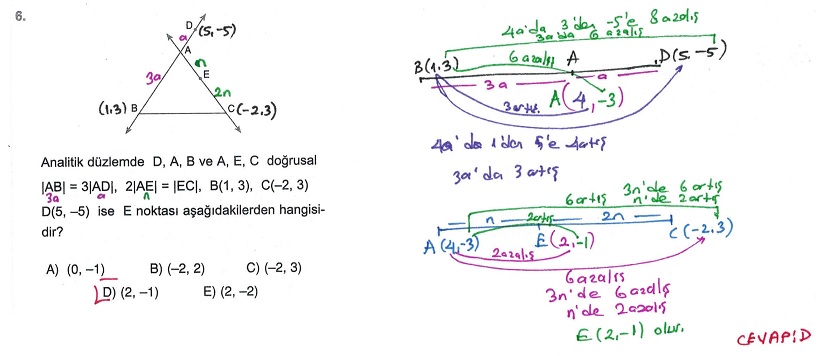 6.
D (5, -5)
a
A
n
E
3a
2n
(1,3) B
C (-2,3)
Analitik düzlemde D, A, B ve A, E, C doğrusal
|AB| = 3|AD|, 2|AE| = |EC|, B(1, 3), C(–2, 3)
3a a n
D(5, –5) ise E noktası aşağıdakilerden hangisi-
dir?
A) (0, –1) B) (–2, 2) C) (–2, 3)
D) (2, –1) E) (2, –2)
4a'da 3'den -5'e 8 azalış
3a'da 6 azalış
B(1,3) 6 azalış A D(5,-5)
3a a
3 artış A(4,-3)
4a'da 1'den 5'e 4 artış
3a'da 3 artış
3n'de 6 artış
6 artış n'de 2 artış
n 2 artış 2n
A(4,-3) E(2,-1) C(-2,3)
2 azalış
6 azalış
3n'de 6 azalış
n'de 2 azalış
E(2,-1) olur.
CEVAP:D